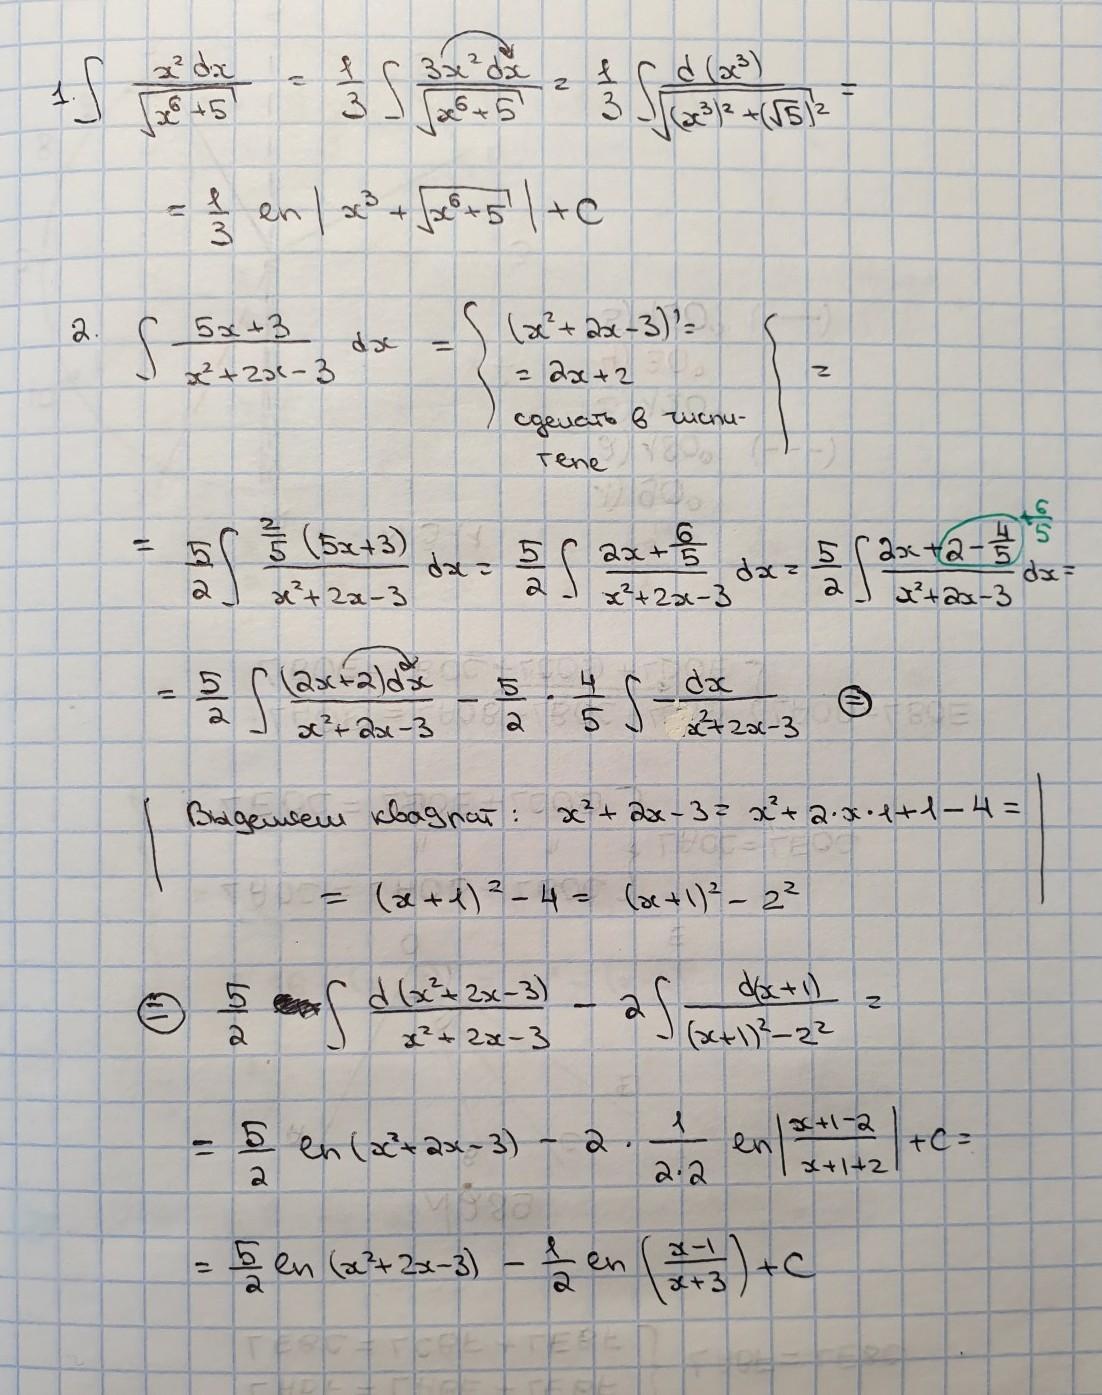 1. ∫ x² dx / √(x⁶+5) = 1/3 ∫ 3x² dx / √(x⁶+5) = 1/3 ∫ d(x³) / √((x³)²+(√5)²) =
= 1/3 ln| x³ + √(x⁶+5) | + C
2. ∫ (5x+3) / (x²+2x-3) dx = { (x²+2x-3)' =
= 2x+2
сделать в числи-
теле { =
= 5/2 ∫ 2/5 (5x+3) / (x²+2x-3) dx = 5/2 ∫ (2x + 6/5) / (x²+2x-3) dx = 5/2 ∫ (2x+2-4/5) / (x²+2x-3) dx = +6/5
= 5/2 ∫ (2x+2)dx / (x²+2x-3) - 5/2 · 4/5 ∫ dx / (x²+2x-3) ⊜
| Выделяем квадрат: x²+2x-3 = x²+2·x·1+1-4 = |
= (x+1)² - 4 = (x+1)² - 2²
⊜ 5/2 ∫ d(x²+2x-3) / (x²+2x-3) - 2∫ d(x+1) / ((x+1)²-2²) =
= 5/2 ln(x²+2x-3) - 2 · 1/(2·2) ln| (x+1-2)/(x+1+2) | + C =
= 5/2 ln (x²+2x-3) - 1/2 ln ( (x-1)/(x+3) ) + C